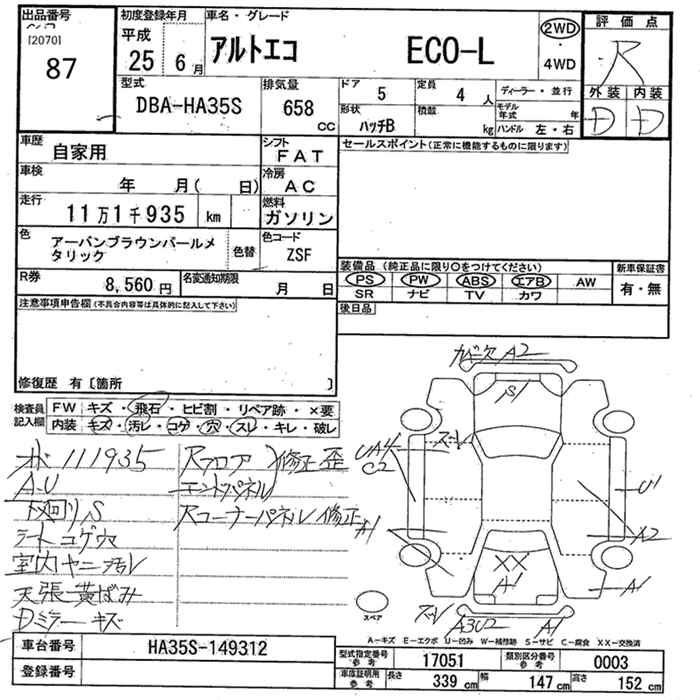 出品番号
[2070]
87
初度登録年月
平成
25 6月
車名・グレード
アルトエコ ECO-L
2WD
・
4WD
評価点
R
外装 内装
D D
型式
DBA-HA35S
排気量
658 CC
ドア 5
定員 4 人
形状 ハッチB
積載 kg
ディーラー・並行
モデル年式 年
ハンドル 左・右
車歴
自家用
シフト
FAT
車検
年 月( 日)
冷房
AC
走行
11万1千935 km
燃料
ガソリン
色
アーバンブラウンパールメ
タリック
色替
色コード
ZSF
R券
8,560円
名変通知期限
月 日
セールスポイント(正常に機能するものに限ります)
装備品 (純正品に限り○をつけてください)
PS PW ABS エアB AW
SR ナビ TV カワ
新車保証書
有・無
後日品
注意事項申告欄(不具合内容等は具体的に記入して下さい)
修復歴 有〔箇所 〕
検査員
記入欄
FW キズ・飛石・ヒビ割・リペア跡・×要
内装 キズ・汚レ・コゲ・穴・スレ・キレ・破レ
111935
A.U
下廻りS
シートコゲ穴
室内ヤニ汚レ
天張黄ばみ
Dミラーキズ
Rフロア
エンドパネル
修正歪
Rコーナーパネル修正
カド欠A2
S1
UA4
C2
スーレ
U1
A1
A2
XX
A1
A1
スーレ A3U2 A1
スペア
A-キズ E-エクボ U-凹み W-補修跡 S-サビ C-腐食 XX-交換済
車台番号
HA35S-149312
登録番号
型式指定番号
参考
17051
類別区分番号
参考
0003
車庫証明用
参考
長さ 339 cm 幅 147 cm 高さ 152 cm